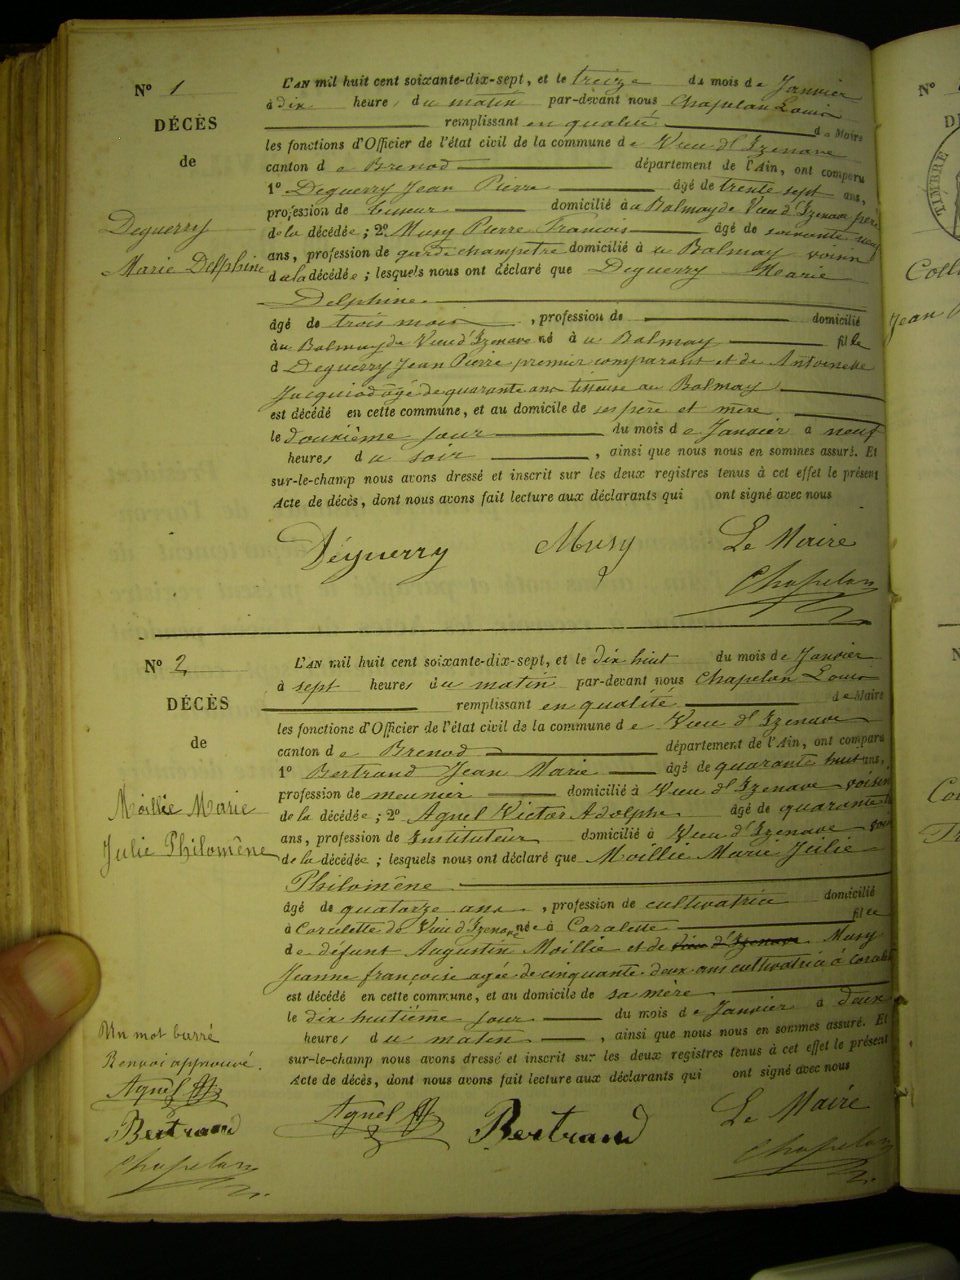 N° 1
DÉCÈS
de
Deguerry
Marie Delphine
L'AN mil huit cent soixante-dix-sept, et le treize du mois de Janvier
à dix heures du matin par-devant nous Chapelan Louis
remplissant en qualité de Maire
les fonctions d'Officier de l'état civil de la commune de Vieu d'Izenave
canton de Brenod département de l'Ain, ont comparu
1° Deguerry Jean Pierre âgé de trente sept ans,
profession de tisseur domicilié à au Balmay de Vieu d'Izenave père
de la décédée ; 2° Musy Pierre François âgé de soixante neuf
ans, profession de garde champêtre domicilié à au Balmay voisin
de la décédée ; lesquels nous ont déclaré que Deguerry Marie
Delphine
âgé de trois mois , profession de domicilié
à au Balmay de Vieu d'Izenave né à au Balmay fille
d Deguerry Jean Pierre premier comparant et de Antoinette
âgé de quarante ans tisseuse au Balmay
est décédé en cette commune, et au domicile de ses père et mère
le douzième jour du mois de Janvier à neuf
heures du soir , ainsi que nous nous en sommes assuré. Et
sur-le-champ nous avons dressé et inscrit sur les deux registres tenus à cet effet le présent
Acte de décès, dont nous avons fait lecture aux déclarants qui ont signé avec nous
Déguerry Musy Le Maire
Chapelan
N° 2
DÉCÈS
de
Moillie Marie
Julie Philomène
L'AN mil huit cent soixante-dix-sept, et le dix huit du mois de Janvier
à sept heures du matin par-devant nous Chapelan Louis
remplissant en qualité de Maire
les fonctions d'Officier de l'état civil de la commune de Vieu d'Izenave
canton de Brenod département de l'Ain, ont comparu
1° Bertrand Jean Marie âgé de quarante huit ans,
profession de meunier domicilié à Vieu d'Izenave voisin
de la décédée ; 2° Agnel Victor Adolphe âgé de quarante
ans, profession de Instituteur domicilié à Vieu d'Izenave
de la décédée ; lesquels nous ont déclaré que Moillie Marie Julie
Philomène
âgé de quatorze ans , profession de cultivatrice domicilié
à Coralette de Vieu d'Izenave née à Coralette fille
de défunt Augustin Moillie et de Vieu d'Izenave Musy
Jeanne françoise agée de cinquante-deux ans cultivatrice à
est décédé en cette commune, et au domicile de sa mère
le dix huitième jour du mois de Janvier à deux
heures du matin , ainsi que nous nous en sommes assuré. Et
sur-le-champ nous avons dressé et inscrit sur les deux registres tenus à cet effet le présent
Acte de décès, dont nous avons fait lecture aux déclarants qui ont signé avec nous
Un mot barré
Renvoi approuvé.
Agnel
Bertrand
Chapelan
Agnel Bertrand Le Maire
Chapelan
N°
TIMBRE